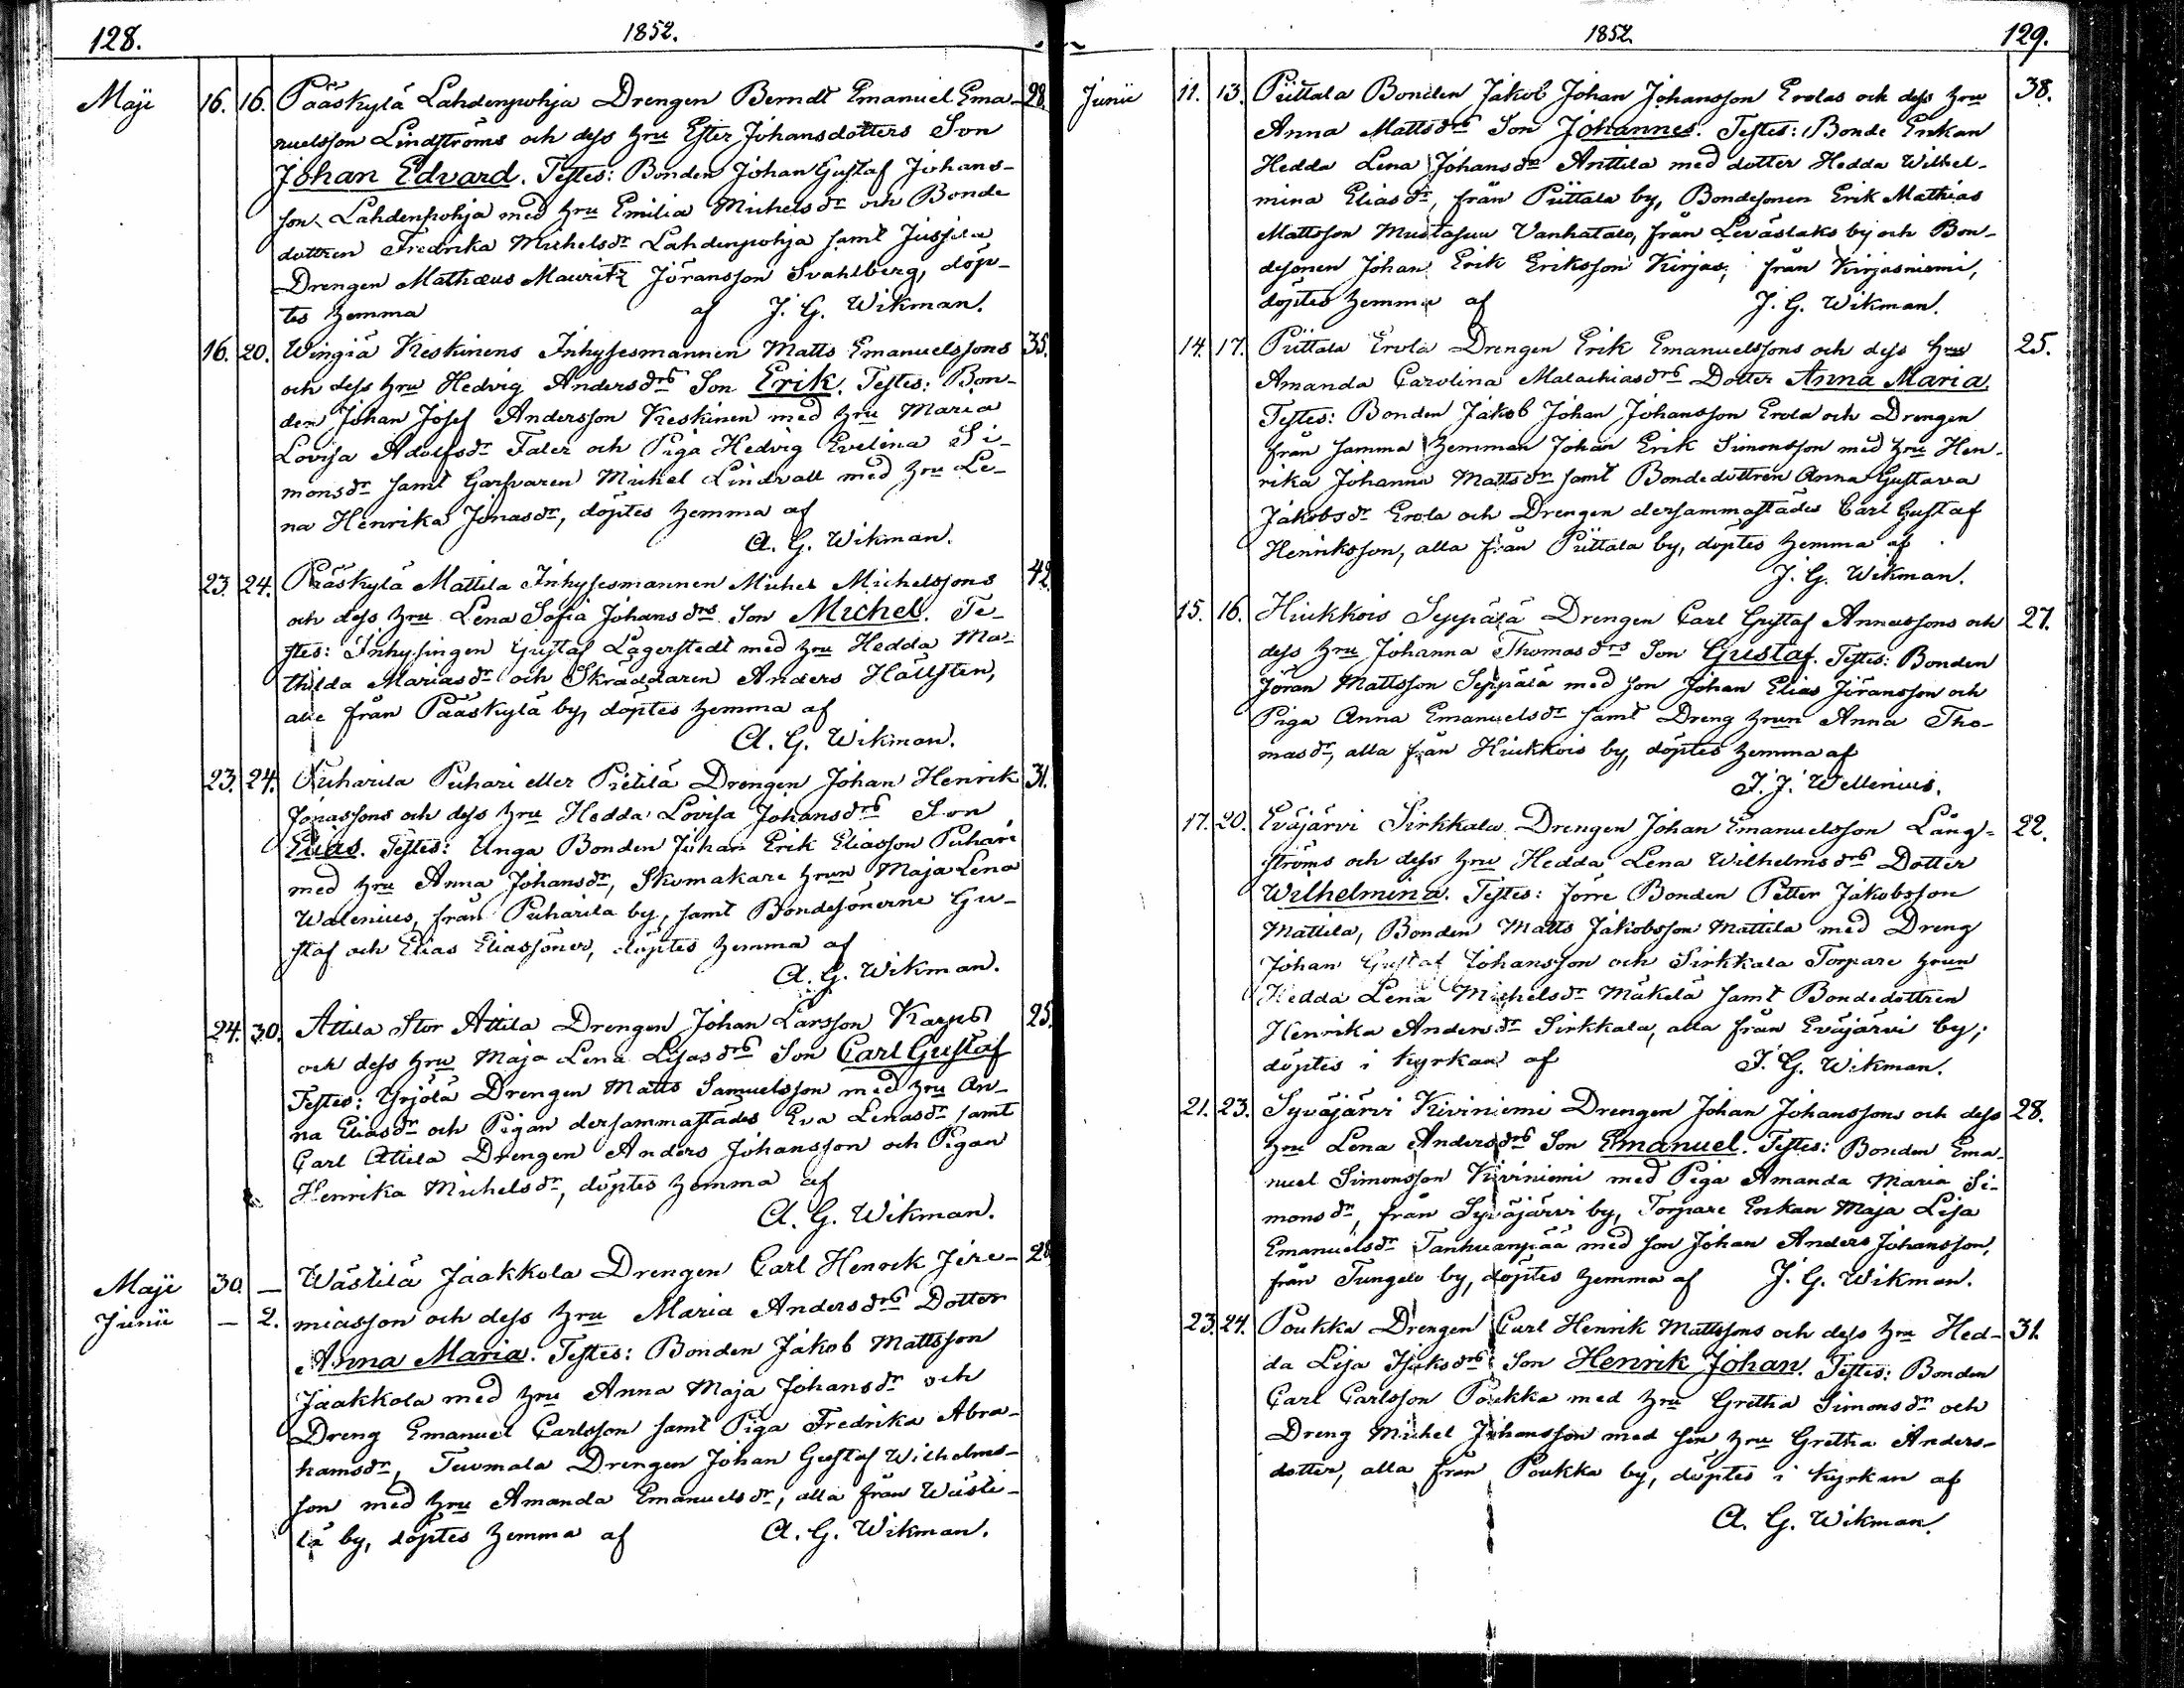 128. 1852.
Maji 16. 16. Pääskylä Lahdenpohja Drengen Berndt Emanuel Ema- 28.
nuelsson Lindströms och dess hru Ester Johansdotters Son
Johan Edvard. Testes: Bonden Johan Gustaf Johans-
son Lahdenpohja med hru Emilia Michelsdr och Bonde
dottren Fredrika Michelsdr Lahdenpohja samt Jussila
Drengen Mathæus Mauritz Jöransson Svahlberg, döp-
tes hemma af J. G. Wikman.
16. 20. Wingiä Keskinens Inhysesmannen Matts Emanuelssons 35.
och dess hru Hedvig Andersdrs Son Erik. Testes: Bon-
den Johan Josef Andersson Keskinen med hru Maria
Lovisa Adolfsdr Faler och Piga Hedvig Evelina Si-
monsdr samt Garfvaren Michel Lindvall med hru Le-
na Henrika Jonasdr, döptes hemma af
A. G. Wikman.
23. 24. Pääskylä Mattila Inhysesmannen Michel Michelssons 42.
och dess hru Lena Sofia Johansdrs Son Michel. Te-
stes: Inhysingen Gustaf Lagerstedt med hru Hedda Ma-
thilda Mariasdr och Skräddaren Anders Hällsten,
alle från Pääskylä by, döptes hemma af
A. G. Wikman.
23. 24. Puharila Puhari eller Pietilä Drengen Johan Henrik 31.
Jonassons och dess hru Hedda Lovisa Johansdrs Son
Elias. Testes: Unga Bonden Johan Erik Eliasson Puhari
med hru Anna Johansdr, Skomakare hrun Maja Lena
Walenius, från Puharila by, samt Bondesönerne Gu-
staf och Elias Eliassöner, döptes hemma af
A. G. Wikman.
24. 30. Attila Stor Attila Drengen Johan Larsson Karpus 25.
och dess hru Maja Lena Lisasdrs Son Carl Gustaf
Testes: Yrjölä Drengen Matts Samuelsson med hru An-
na Eliasdr och Pigan dersammastädes Eva Lenasdr samt
Carl Attila Drengen Anders Johansson och Pigan
Henrika Michelsdr, döptes hemma af
A. G. Wikman.
Maji 30. — Wästilä Jaakkola Drengen Carl Henrik Jere- 28.
Junii — 2. miasson och dess hru Maria Andersdrs Dotter
Anna Maria. Testes: Bonden Jakob Mattsson
Jaakkola med hru Anna Maja Johansdr och
Dreng Emanuel Carlsson samt Piga Fredrika Abra-
hamsdr, Tuomala Drengen Johan Gustaf Wilhelms-
son med hru Amanda Emanuelsdr, alla från Wästi-
lä by, döptes hemma af A. G. Wikman.
1852. 129.
Junii 11. 13. Püttala Bonden Jakob Johan Johansson Erolas och dess hru 38.
Anna Mattsdrs Son Johannes. Testes: Bonde Enkan
Hedda Lena Johansdr Anttila med dotter Hedda Wilhel-
mina Eliasdr, från Püttala by, Bondesonen Erik Mathias
Mattsson Mustasuu Vanhatalo, från Leväslaks by och Bon-
desonen Johan Erik Eriksson Kirjas, från Kirjasniemi,
döptes hemma af J. G. Wikman.
14. 17. Püttala Erola Drengen Erik Emanuelssons och dess hru 25.
Amanda Carolina Malachiasdrs Dotter Anna Maria.
Testes: Bonden Jakob Johan Johansson Erola och Drengen
från samma hemman Johan Erik Simonsson med hru Hen-
rika Johanna Mattsdr samt Bondedottren Anna Gustava
Jakobsdr Erola och Drengen dersammastädes Carl Gustaf
Henriksson, alla från Püttala by, döptes hemma af
J. G. Wikman.
15. 16. Hiukkois Seppälä Drengen Carl Gustaf Annassons och 27.
dess hru Johanna Thomasdrs Son Gustaf. Testes: Bonden
Jöran Mattsson Seppälä med son Johan Elias Jöransson och
Piga Anna Emanuelsdr samt Dreng hrun Anna Tho-
masdr, alla från Hiukkois by, döptes hemma af
J. J. Wellenius.
17. 20. Eväjärvi Sirkkala Drengen Johan Emanuelsson Lång- 22.
ströms och dess hru Hedda Lena Wilhelmsdrs Dotter
Wilhelmina. Testes: förre Bonden Petter Jakobsson
Mattila, Bonden Matts Jakobsson Mattila med Dreng
Johan Gustaf Johansson och Sirkkala Torpare hrun
Hedda Lena Michelsdr Mäkelä samt Bondedottren
Henrika Andersdr Sirkkala, alla från Eväjärvi by;
döptes i Kyrkan af J. G. Wikman.
21. 23. Syväjärvi Kiviniemi Drengen Johan Johanssons och dess 28.
hru Lena Andersdrs Son Emanuel. Testes: Bonden Ema-
nuel Simonsson Kiviniemi med Piga Amanda Maria Si-
monsdr, från Syväjärvi by, Torpare Enkan Maja Lisa
Emanuelsdr Tanhuanpää med son Johan Anders Johansson,
från Tungelo by, döptes hemma af J. G. Wikman.
23. 24. Poukka Drengen Carl Henrik Mattssons och dess hru Hed- 31.
da Lisa Isaksdrs Son Henrik Johan. Testes: Bonden
Carl Carlsson Poukka med hru Gretha Simonsdr och
Dreng Michel Johansson med sin hru Gretha Anders-
dotter, alla från Poukka by, döptes i Kyrkan af
A. G. Wikman.